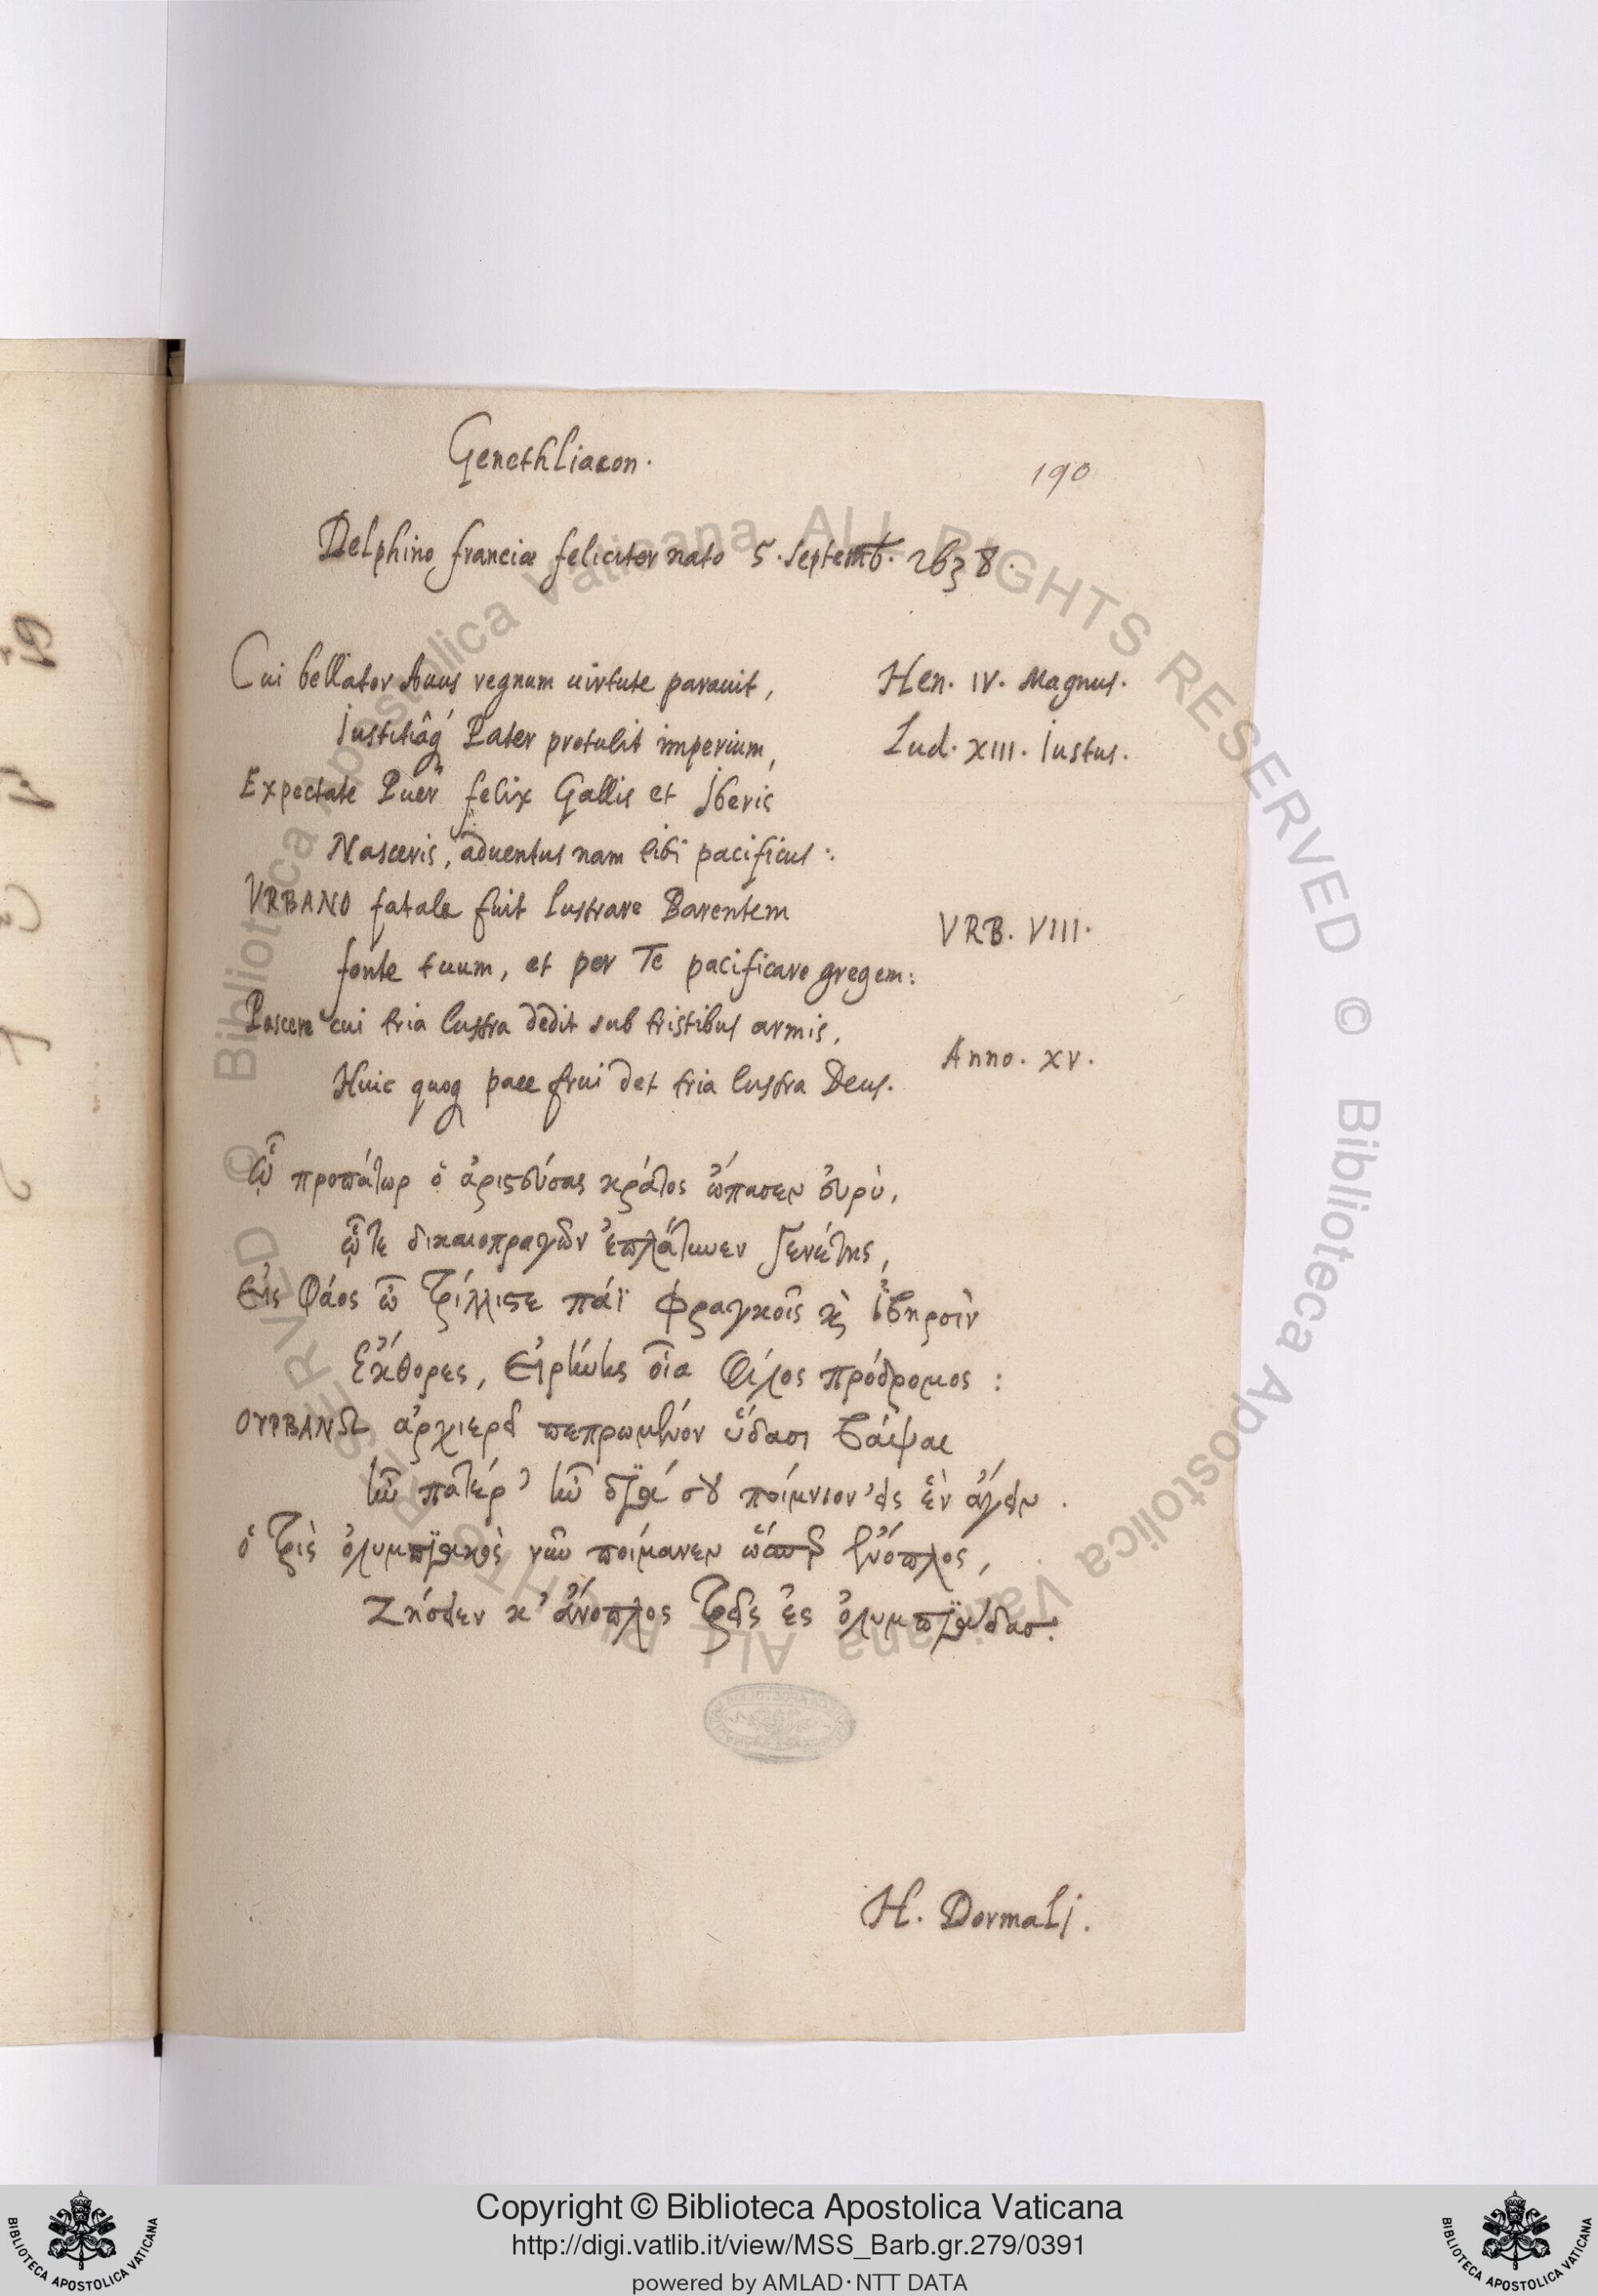 Genethliacon.
190
Delphino franciæ feliciter nato 5. septemb. 1638.
Cui bellator Auus regnum uirtute parauit,
Hen. IV. Magnus.
Iustitiâq́ Pater protulit imperium,
Lud. XIII. Iustus.
Expectate Puer felix Gallis et Iberis
Nasceris, aduentus nam tibi pacificus:
VRBANO fatale fuit lustrare Parentem
VRB. VIII.
fonte tuum, et per Te pacificare gregem:
Pascere cui tria lustra dedit sub tristibus armis,
Anno. XV.
Huic quoq pace frui det tria lustra Deus.
ᾯ προπάτωρ ὁ ἀριστεύσας κράτος ὤπασεν εὐρὺ,
ᾧτε δικαιοπραγῶν ἐπλάτυνεν Γενέτης,
Εἰς Φάος ὦ τρίλλιστε πάϊ Φραγκοῖς κὶ ἴβηρσιν
Εκθορες, Εἰρήνης οἷα Φίλος πρόδρομος:
ΟΥΡΒΑΝΩ ἀρχιερεῖ πεπρωμένον ὕδασι βάψαι
τὸν πατέρ' ἠδὲ σου ποίμνιον εἰς ἓν ἄγειν.
ὁ τρὶς ὀλυμπιακὸς ποίμανεν ἔνοπλος,
Ζήσειεν κ' ἄνοπλος τρεῖς ἐς ὀλυμπιάδας.
H. Dormalj.
Copyright © Biblioteca Apostolica Vaticana
http://digi.vatlib.it/view/MSS_Barb.gr.279/0391
powered by AMLAD·NTT DATA
BIBLIOTECA APOSTOLICA VATICANA
BIBLIOTECA APOSTOLICA VATICANA
© Biblioteca Apostolica Vaticana ALL RIGHTS RESERVED © Biblioteca Apostolica Vaticana ALL RIGHTS RESERVED